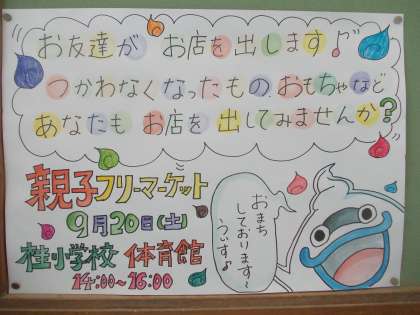 お友達が お店を出します♪
つかわなくなったもの おもちゃなど
あなたも お店を出してみませんか?
親子フリーマーケット
9月20日(土)
桂小学校 体育館
14:00~16:00
おまち
しております~
うぃす♪